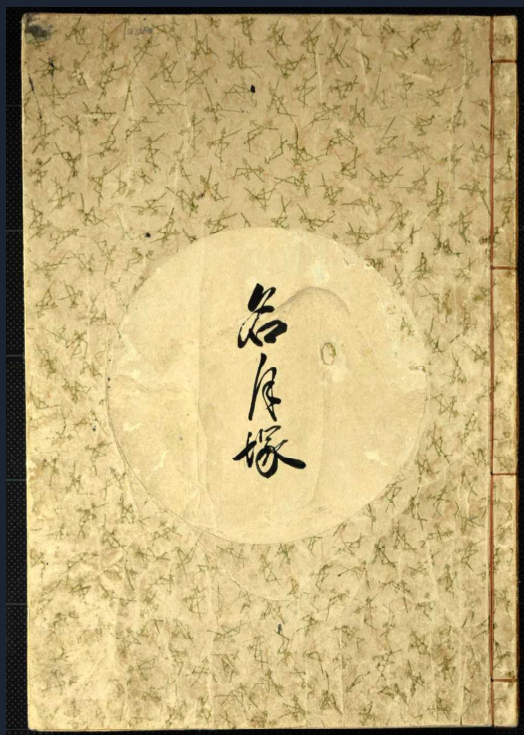 名月塚